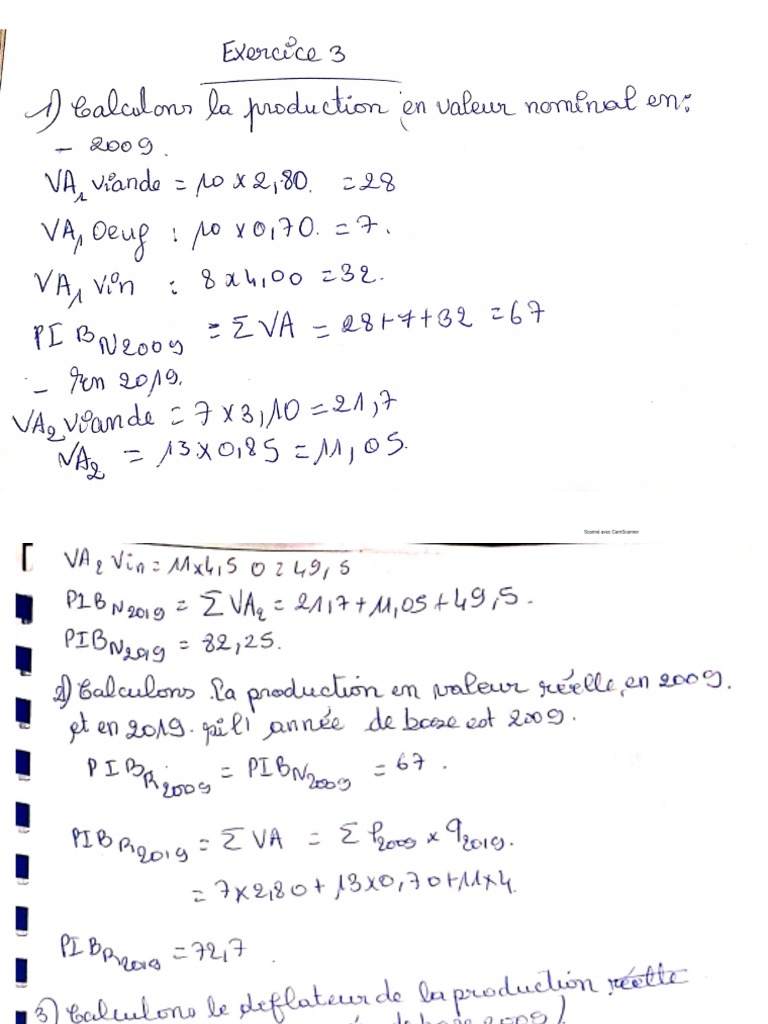 Exercice 3
1) Calculons la production en valeur nominal en:
- 2009.
VA₁ viande = 10 x 2,80. = 28
VA₁ Oeuf : 10 x 0,70. = 7.
VA₁ Vin : 8 x 4,00 = 32.
PIB N2009 = Σ VA = 28 + 7 + 32 = 67
- en 2019.
VA₂ viande = 7 x 3,10 = 21,7
VA₂ = 13 x 0,85 = 11,05.
Scanné avec CamScanner
VA₂ Vin = 11x4,50 = 49,5
PIB N2019 = Σ VA₂ = 21,7 + 11,05 + 49,5.
PIB N2019 = 82,25.
2) Calculons la production en valeur réelle, en 2009.
et en 2019. si l'année de base est 2009.
PIB R2009 = PIB N2009 = 67.
PIB R2019 = Σ VA = Σ P2009 x q2019.
= 7x2,80 + 13x0,70 + 11x4.
PIB R2019 = 72,7.
3) Calculons le deflateur de la production réelle
de base 2009)